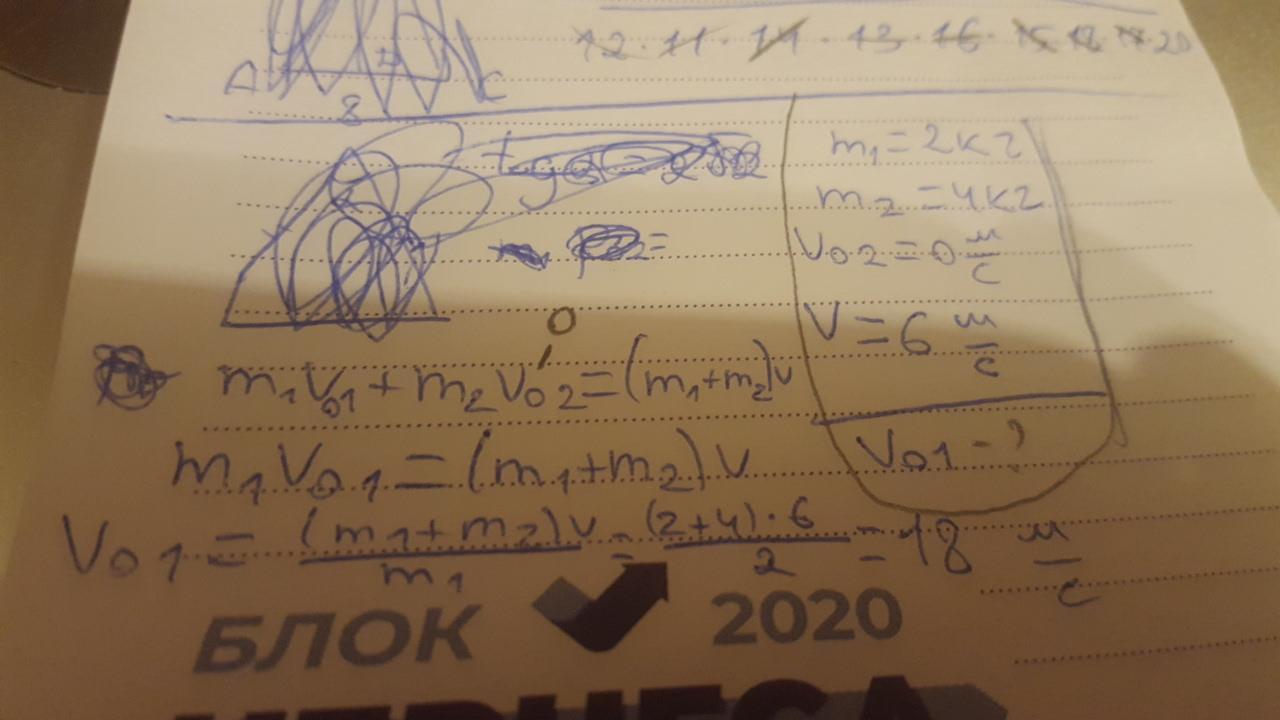 12 · 11 · 14 · 13 · 16 · 15 18 17 20
A
8
C
m₁ = 2кг
m₂ = 4кг
V₀₂ = 0 м/с
V = 6 м/с
V₀₁ - ?
0
m₁V₀₁ + m₂V₀₂ = (m₁+m₂)v
m₁V₀₁ = (m₁+m₂)v
V₀₁ = (m₁+m₂)v / m₁ = (2+4)·6 / 2 = 18 м/с
БЛОК 2020